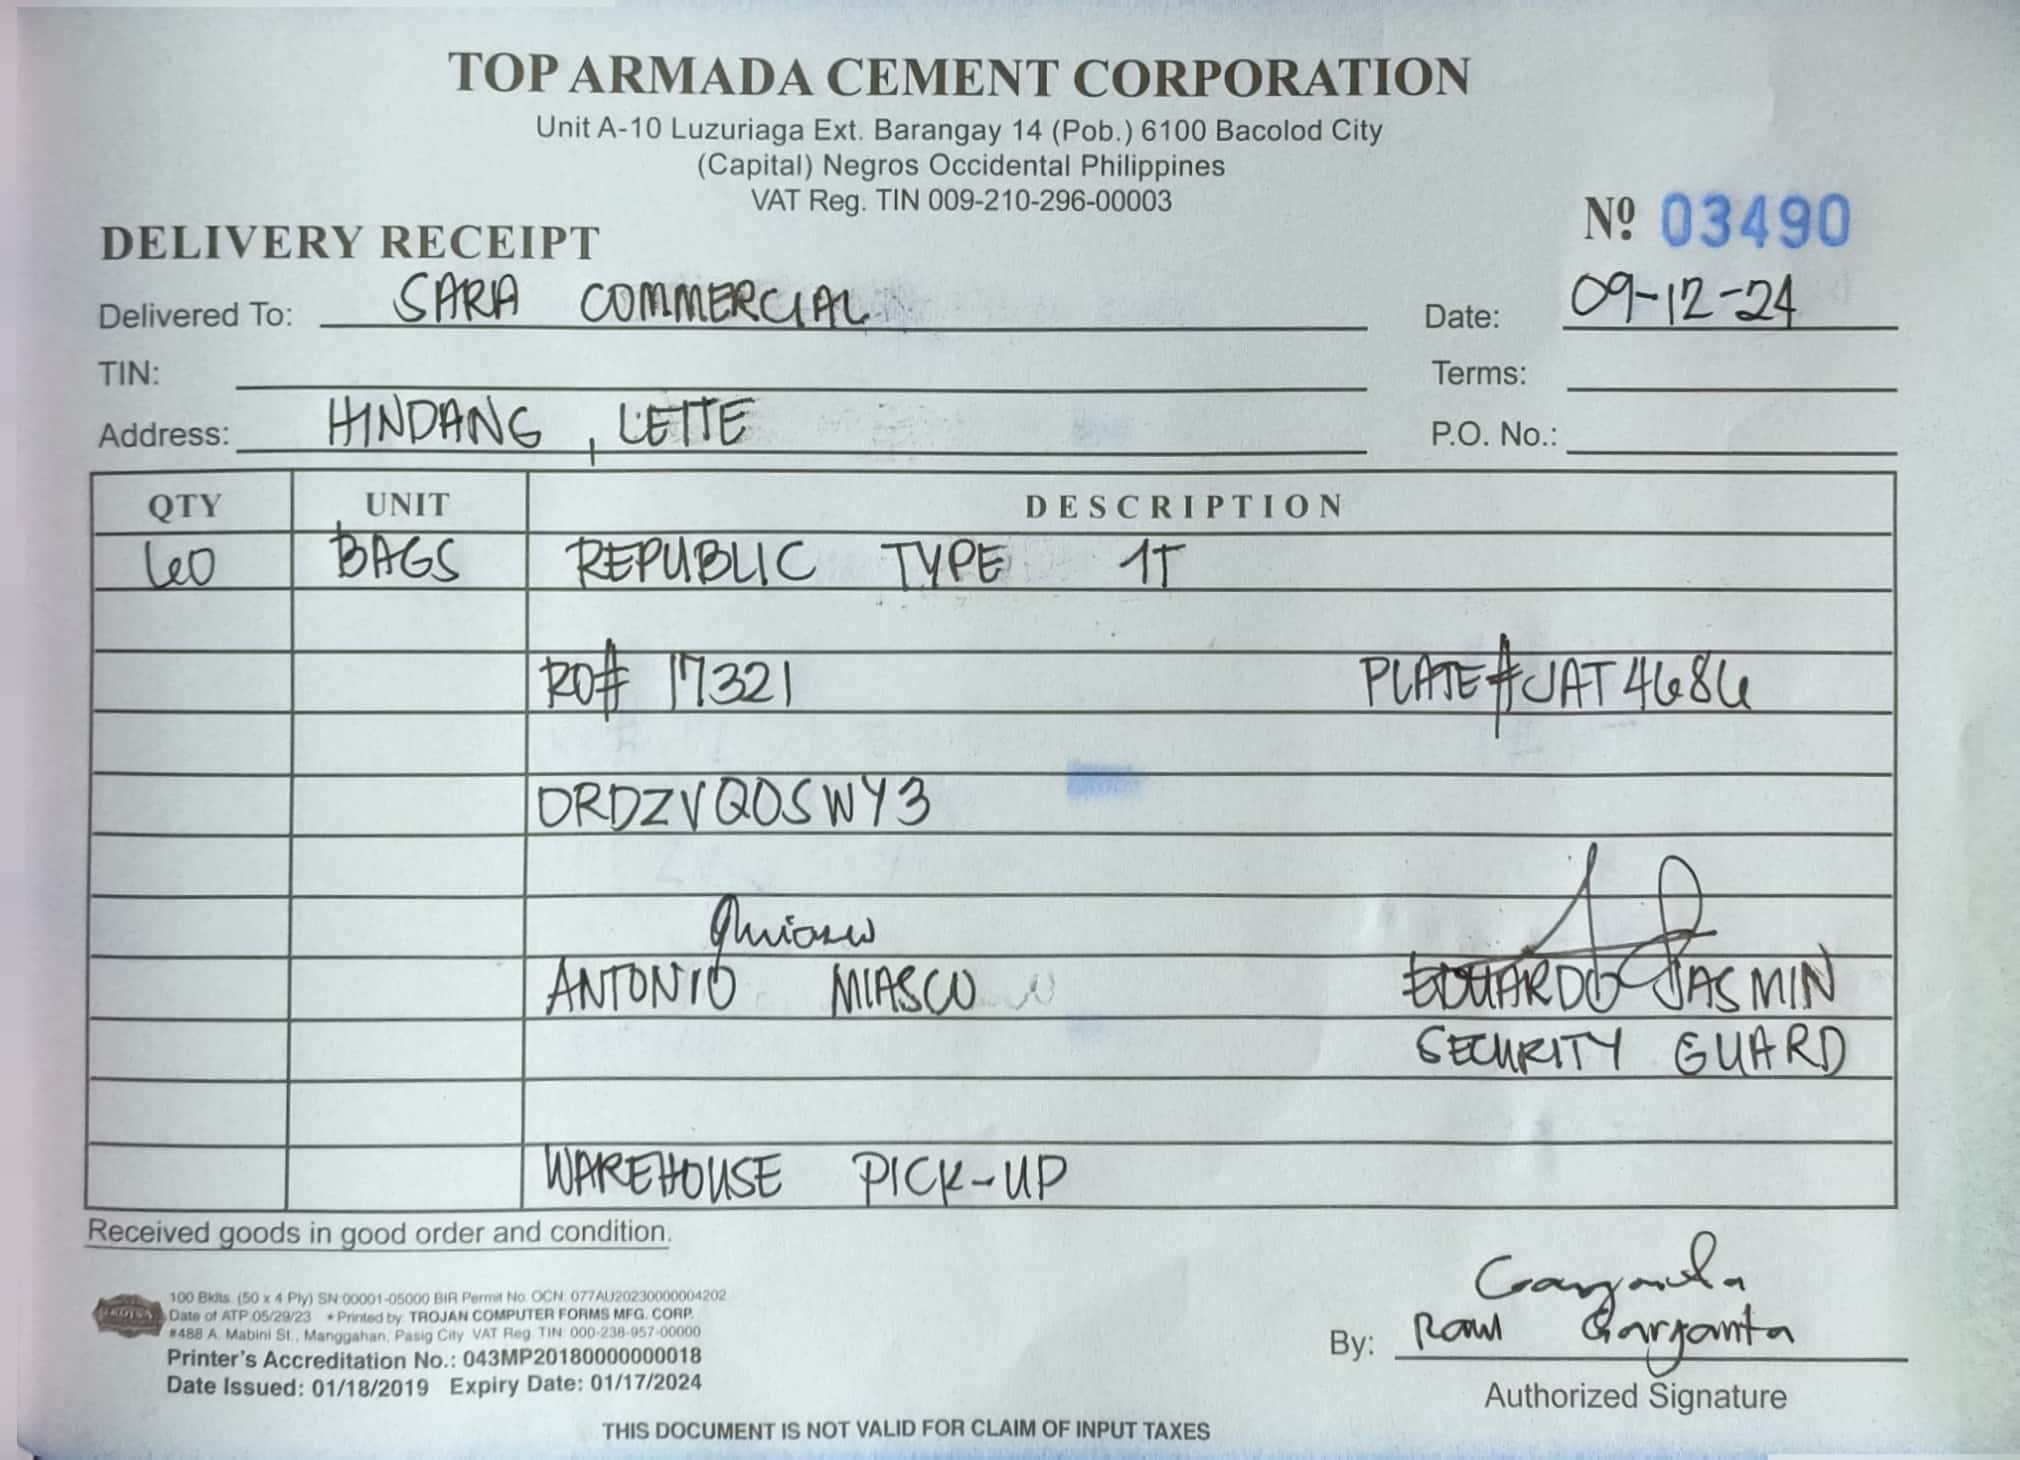 TOP ARMADA CEMENT CORPORATION
Unit A-10 Luzuriaga Ext. Barangay 14 (Pob.) 6100 Bacolod City
(Capital) Negros Occidental Philippines
VAT Reg. TIN 009-210-296-00003
DELIVERY RECEIPT Nº 03490
Delivered To: SARA COMMERCIAL Date: 09-12-24
TIN: Terms:
Address: HINDANG, LEITE P.O. No.:
QTY UNIT DESCRIPTION
60 BAGS REPUBLIC TYPE 1T
RO# 17321 PLATE# JAT4686
ORDZVQOSWY3
ANTONIO MIASCO EDUARDO JASMIN
SECURITY GUARD
WAREHOUSE PICK-UP
Received goods in good order and condition.
100 Bklts. (50 x 4 Ply) SN:00001-05000 BIR Permit No. OCN: 077AU20230000004202
Date of ATP:05/29/23 • Printed by: TROJAN COMPUTER FORMS MFG. CORP.
#488 A. Mabini St., Manggahan, Pasig City VAT Reg. TIN: 000-238-957-00000
Printer's Accreditation No.: 043MP20180000000018
Date Issued: 01/18/2019 Expiry Date: 01/17/2024
By: Raul Garganta
Authorized Signature
THIS DOCUMENT IS NOT VALID FOR CLAIM OF INPUT TAXES